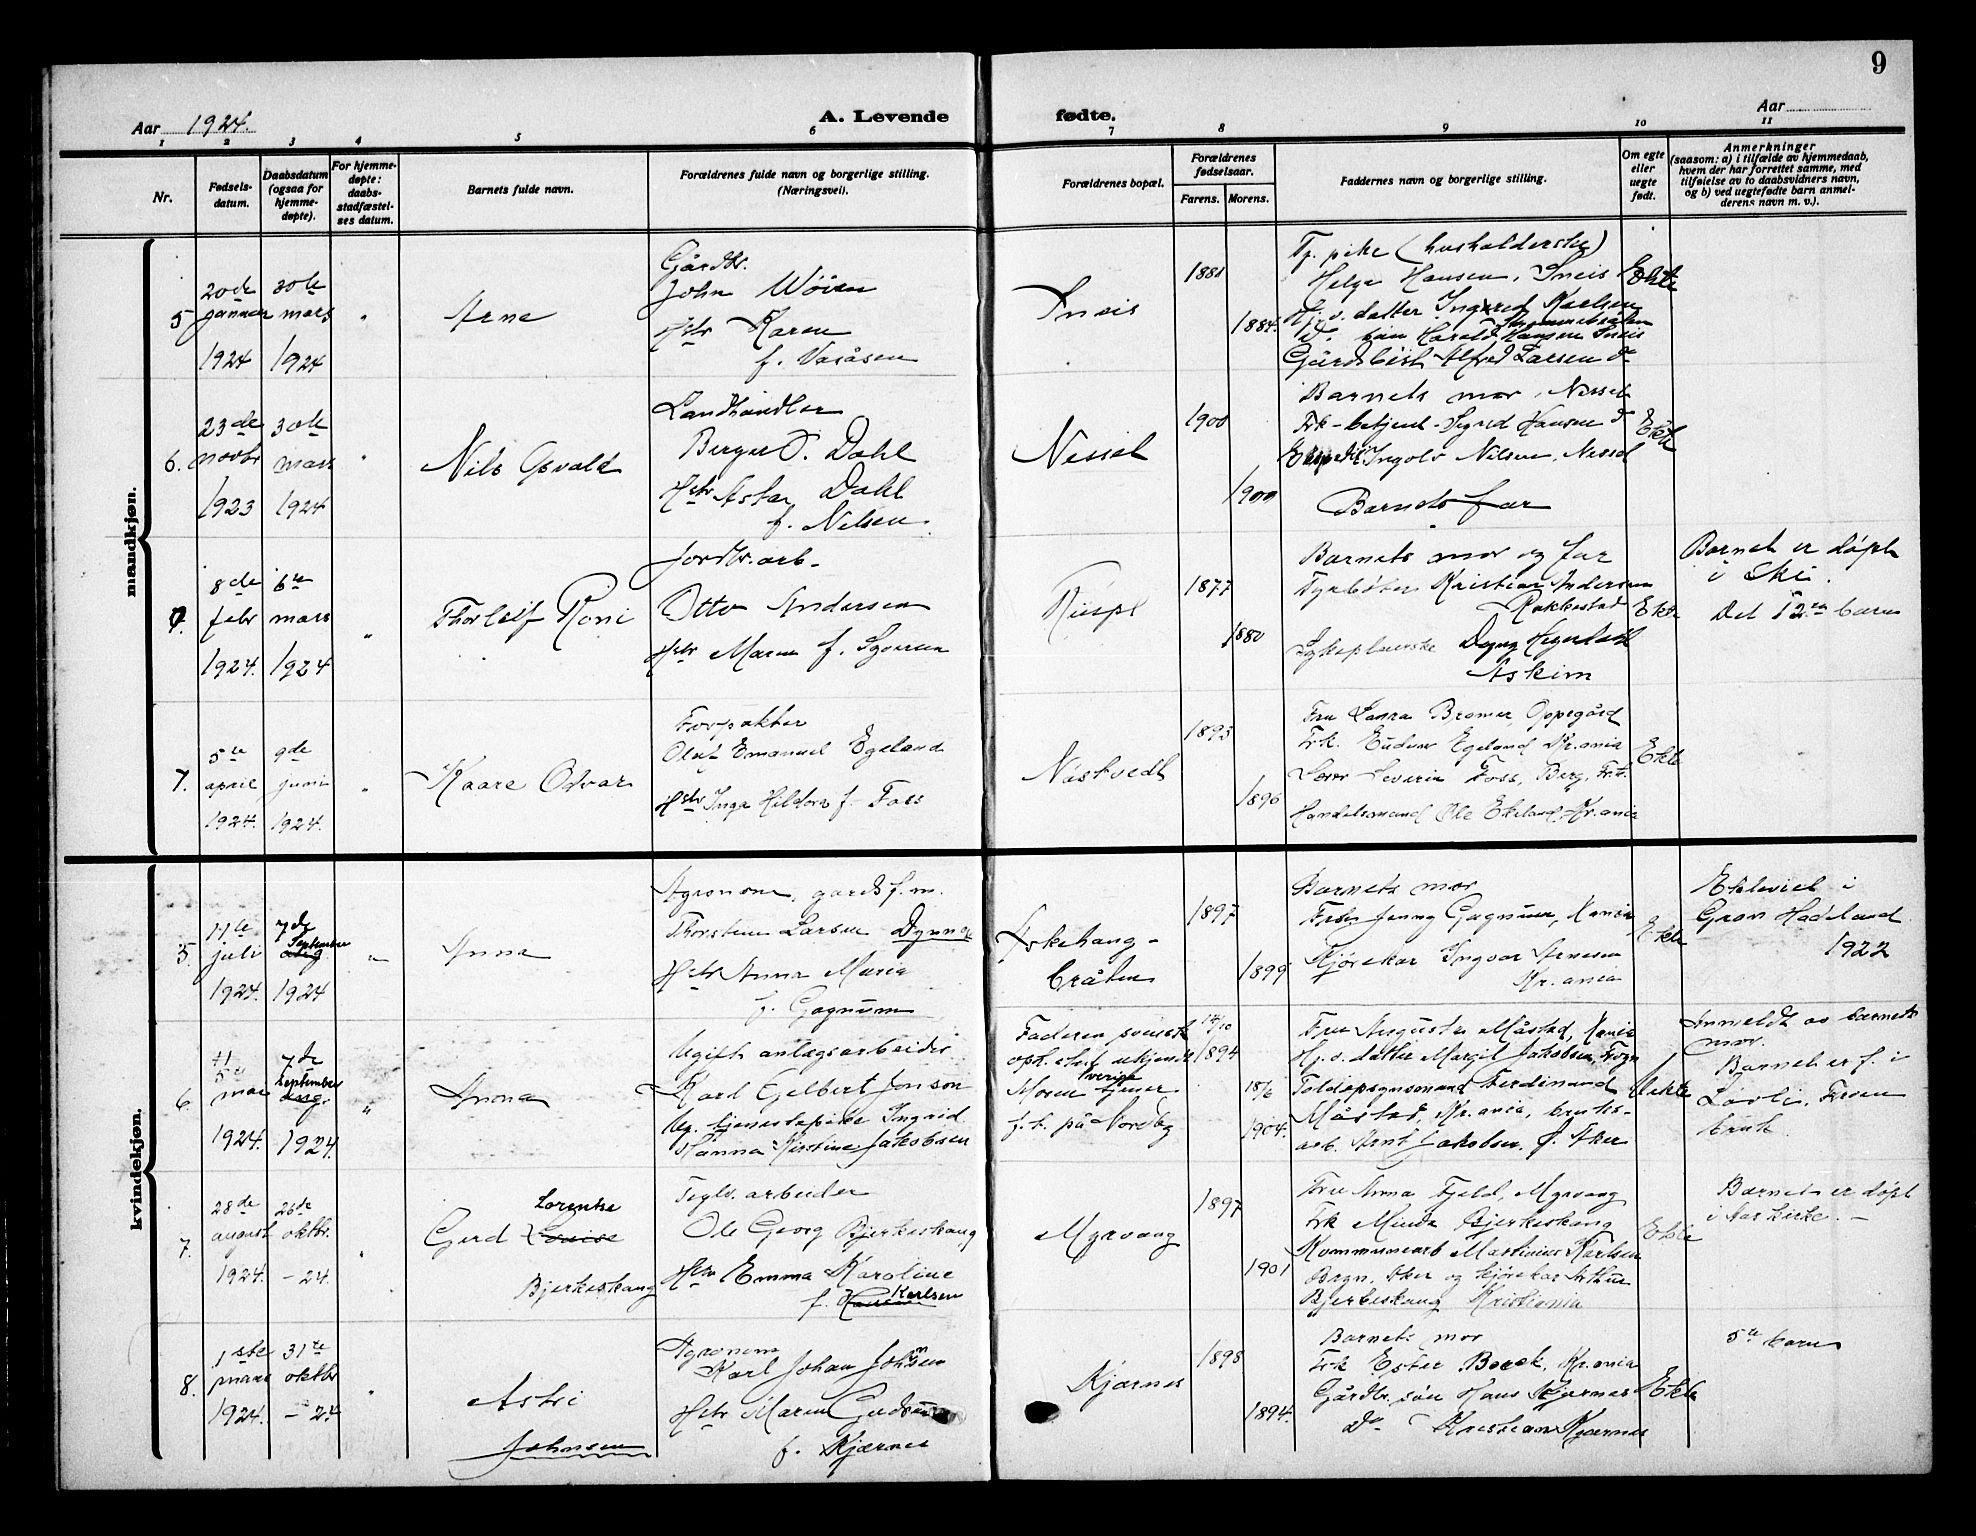 9
Aar 1924.
A. Levende fødte.
Aar
1 2 3 4 5 6 7 8 9 10 11
Nr.
Fødsels-
datum.
Daabsdatum
(ogsaa for
hjemme-
døpte).
For hjemme-
døpte:
daabs-
stadfæstel-
ses datum.
Barnets fulde navn.
Forældrenes fulde navn og borgerlige stilling.
(Næringsvei).
Forældrenes bopæl.
Forældrenes
fødselsaar.
Farens. Morens.
Faddernes navn og borgerlige stilling.
Om egte
eller
uegte
født.
Anmerkninger
(saasom: a) i tilfælde av hjemmedaab,
hvem der har forrettet samme, med
tilføielse av to daabsvidners navn,
og b) ved uegtefødte barn anmel-
derens navn m. v.).
mandkjøn.
5
20de
januar
1924
30te
mars
1924
"
Arne
Gårdbr.
John Wøien
Hstr Karen
f. Vasåsen
Sneis
1881
1884.
Tj. pike (husholderske)
Helga Hansen, Sneis
Gj. v. datter Ingrid Karlsen
Harald Hansen Sneis
Gårdsbest. Alfred Larsen do
Ekte
6.
23de
novbr
1923
30te
mars
1924
"
Nils Osvald
Landhandler
Birger O. Dahl
Hstr Astar Dahl
f. Nilsen.
Nessel
1900
1900
Barnets mor, Nessel
Frk-betjent-Sigrid Hansen do
Ingolv Nilsen, Nessel
Barnets far
Ekte
7.
8de
febr
1924.
6te
mars
1924
"
Thorleif Roni
Jordbr.arb-
Otto Andersen
Hstr Maren f. Syversen
1877
1880
Barnets mor og far
Fyrbøter Kristian Andersen
Rakkestad
Sykepleierske
Askim
Ekte
Barnet er døpt
i Ski.
Det 12te barn
7.
5te
april
1924.
9de
juni
1924.
"
Kaare Odvar
Forpakter
Olaf Emanuel Egeland
Hstr Inga Hildora f. Foss
Nåstvedt
1893
1896
Fru Laura Bromer, Oppegård
Frk. Egeland Kr.ania
Lærer Severin Foss, Berg, Frk.
Handelsmand Ole Ekeland, Kr.ania
Ekte
kvindekjøn.
5.
11te
juli
1924.
7de
September
aug
1924
"
Anna
Agronom, gårds f.m.
Thorstein Larsen Dynna
Hstr Anna Maria
f. Gagnum
Askehaug-
bråten
1897
1899
Barnets mor
Frk. Jenny Gagnum, Kania
Kjørekar Ingvar Arnesen
Kr.ania
Ekte
Ekteviet i
Gran Hadeland
1922
6.
mai
1924.
7de
September
aug.
1924.
"
Anna
Ugift anlægsarbeider
Karl Gelbert Jonson
Ug. tjenestepike Ingrid
Hanna Kirstine Jakobsen
Faderen svensk
oph. sted ukjent
Sverige
Moren tjener
f. t. på Nordby
14/10
1894
18/6
1904.
Fru Augusta Måstad, Kania
Hj. v. datter Margit Jakobsen, Frogn
Toldopsynsmand Ferdinand
Måstad, Kr.ania, bruks-
arb. Arnt Jakobsen, Ø. Aker
Uekte
Anmeldt av barnets
mor.
Barnet er f. i
Løvli, Froen
bruk.
7.
28de
august
1924.
26de
oktbr.
-24.
"
Lorentse
Gerd Louise
Bjerkeskaug
Teglv. arbeider
Ole Georg Bjerkeskaug
Hstr Emma Karoline
f. Hansen Karlsen
Myrvang
1897
1901
Fru Anna Fjeld, Myrvang
Frk Minda Bjerkeskaug
Kommunearb Martinius Karlsen
Bogn. Aker og kjørekar Arthur
Bjerkeskaug Kristiania
Ekte
Barnet er døpt
i Aas kirke. -
8.
1ste
mars
1924.
31te
oktbr
-24
"
Astri
Johnsen
Agronom
Karl Johan Johnsen
Hstr Maren
f. Kjærnes
Kjærnes
1898
1894.
Barnets mor
Frk Ester Borck, Kr.ania
Gårdbr. søn Hans Kjærnes
Do Kristian Kjærnes
Ekte
5te barn